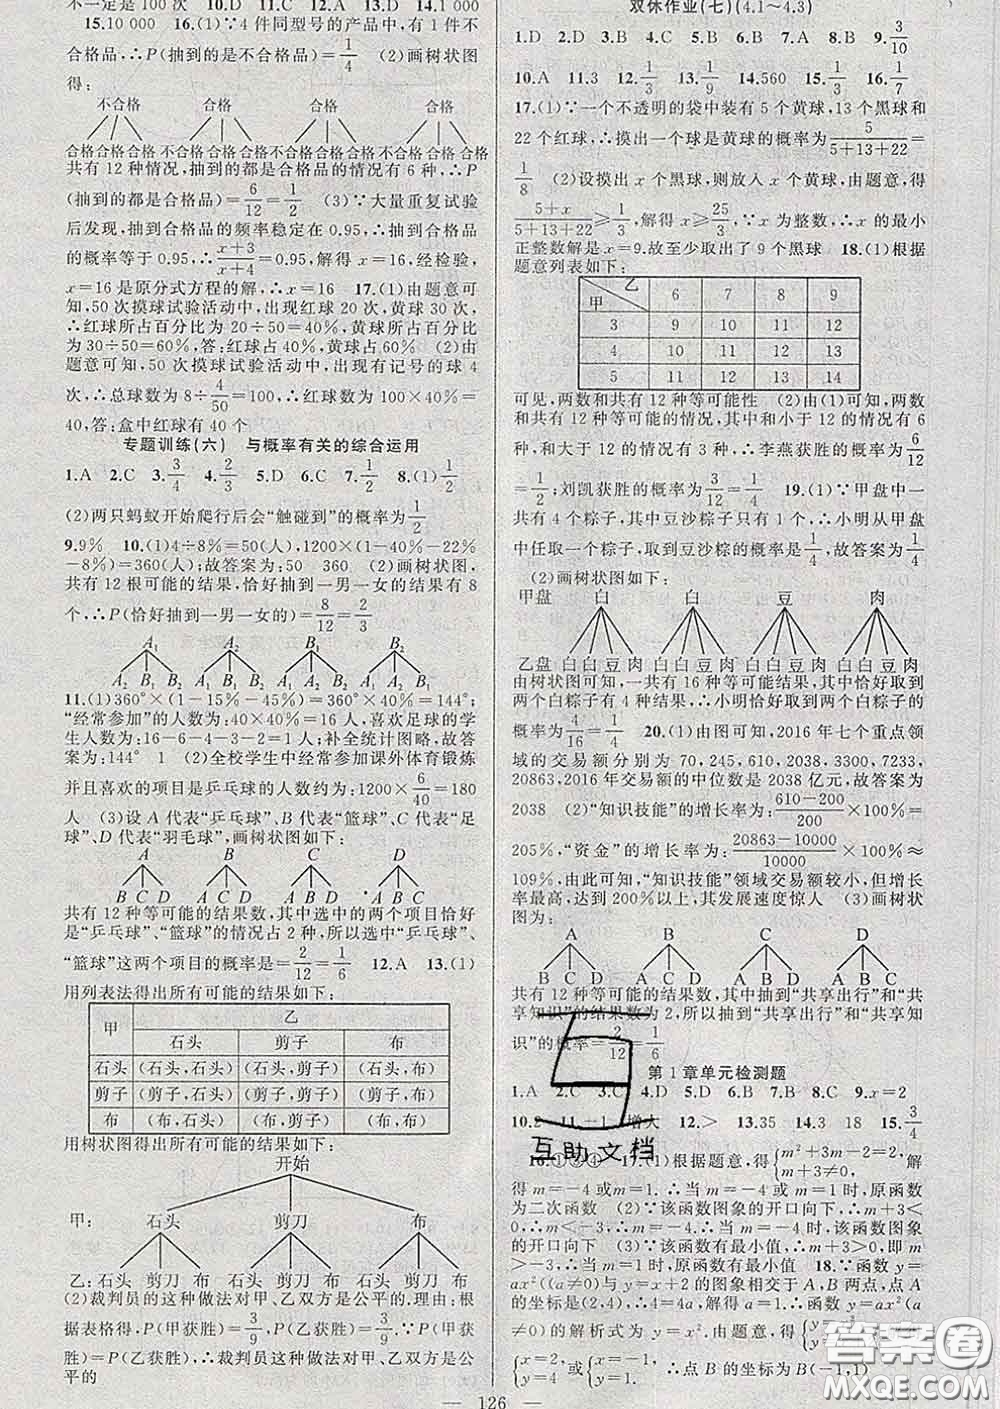 不一定是 100 次 10.D 11.C 12.A 13.D 14.1 000
15.10 000 16.(1)∵4 件同型号的产品中,有 1 件不
合格品,∴P(抽到的是不合格品)=1/4 (2)画树状图
得:
不合格 合格 合格 合格
合格 合格 合格 不合格 合格 合格 不合格 合格 合格 不合格 合格 合格
共有 12 种情况,抽到的都是合格品的情况有 6 种,∴P
(抽到的都是合格品)=6/12=1/2 (3)∵大量重复试验
后发现,抽到合格品的频率稳定在 0.95,∴抽到合格品
的概率等于 0.95,∴(x+3)/(x+4)=0.95,解得 x=16,经检验,
x=16 是原分式方程的解,∴x=16 17.(1)由题意可
知,50 次摸球试验活动中,出现红球 20 次,黄球 30 次,
∴红球所占百分比为 20÷50=40%,黄球所占百分比
为 30÷50=60%,答:红球占 40%,黄球占 60% (2)由
题意可知,50 次摸球试验活动中,出现有记号的球 4
次,∴总球数为 8÷4/50=100,∴红球数为 100×40%=
40,答:盒中红球有 40 个
专题训练(六) 与概率有关的综合运用
1.A 2.C 3.3/4 4.2/3 5.D 6.C 7.1/2 8.(1)1/2
(2)两只蚂蚁开始爬行后会“触碰到”的概率为1/2
9.9% 10.(1)4÷8%=50(人),1200×(1-40%-22%
-8%)=360(人);故答案为:50 360 (2)画树状图,
共有 12 根可能的结果,恰好抽到一男一女的结果有 8
个,∴P(恰好抽到一男一女的)=8/12=2/3
A₁ A₂ B₁ B₂
A₂ B₁ B₂ A₁ B₁ B₂ A₁ A₂ B₂ A₁ A₂ B₁
11.(1)360°×(1-15%-45%)=360°×40%=144°;
“经常参加”的人数为:40×40%=16 人,喜欢足球的学
生人数为:16-6-4-3-2=1 人;补全统计图略,故答
案为:144° 1 (2)全校学生中经常参加课外体育锻炼
并且喜欢的项目是乒乓球的人数约为:1200×6/40=180
人 (3)设 A 代表“乒乓球”、B 代表“篮球”、C 代表“足
球”、D 代表“羽毛球”,画树状图如下:
A B C D
B C D A C D A B D A B C
共有 12 种等可能的结果数,其中选中的两个项目恰好
是“乒乓球”、“篮球”的情况占 2 种,所以选中“乒乓球”、
“篮球”这两个项目的概率是=2/12=1/6 12.A 13.(1)
用列表法得出所有可能的结果如下:
甲 乙
石头 剪子 布
石头 (石头,石头) (石头,剪子) (石头,布)
剪子 (剪子,石头) (剪子,剪子) (剪子,布)
布 (布,石头) (布,剪子) (布,布)
用树状图得出所有可能的结果如下:
开始
甲: 石头 剪刀 布
乙:石头 剪刀 布 石头 剪刀 布 石头 剪刀 布
(2)裁判员的这种做法对甲、乙双方是公平的.理由:根
据表格得,P(甲获胜)=3/9,P(乙获胜)=3/9,∵P(甲获
胜)=P(乙获胜),∴裁判员这种做法对甲、乙双方是公
平的
双休作业(七)(4.1~4.3)
1.D 2.D 3.B 4.C 5.B 6.B 7.A 8.B 9.3/10
10.A 11.3 12.1/3 13.1/9 14.560 15.1/3 16.1/7
17.(1)∵一个不透明的袋中装有 5 个黄球,13 个黑球和
22 个红球,∴摸出一个球是黄球的概率为5/(5+13+22)=
1/8 (2)设摸出 x 个黑球,则放入 x 个黄球,由题意,得
(5+x)/(5+13+22)≥1/3,解得 x≥25/3,∵x 为整数,∴x 的最小
正整数解是 x=9.故至少取出了 9 个黑球 18.(1)根据
题意列表如下:
甲 乙 6 7 8 9
3 9 10 11 12
4 10 11 12 13
5 11 12 13 14
可见,两数和共有 12 种等可能性 (2)由(1)可知,两数
和共有 12 种等可能的情况,其中和小于 12 的情况有 6
种,和大于 12 的情况有 3 种,∴李燕获胜的概率为6/12=
1/2;刘凯获胜的概率为3/12=1/4 19.(1)∵甲盘中一
共有 4 个粽子,其中豆沙粽子只有 1 个,∴小明从甲盘
中任取一个粽子,取到豆沙粽的概率是1/4,故答案为1/4
(2)画树状图如下:
甲盘 白 白 豆 肉
乙盘 白 白 豆 肉 白 白 豆 肉 白 白 豆 肉 白 白 豆 肉
由树状图可知,一共有 16 种等可能结果,其中恰好取到
两个白粽子有 4 种结果,∴小明恰好取到两个白粽子的
概率为4/16=1/4 20.(1)由图可知,2016 年七个重点领
域的交易额分别为 70,245,610,2038,3300,7233,
20863,2016 年交易额的中位数是 2038 亿元,故答案为
2038 (2)“知识技能”的增长率为:(610-200)/200×100%=
205%,“资金”的增长率为:(20863-10000)/10000×100%≈
109%,由此可知,“知识技能”领域交易额较小,但增长
率最高,达到 200%以上,其发展速度惊人 (3)画树状
图为:
A B C D
B C D A C D A B D A B C
共有 12 种等可能的结果数,其中抽到“共享出行”和“共
享知识”的结果数为 2,所以抽到“共享出行”和“共享知
识”的概率=2/12=1/6
第 1 章单元检测题
1.A 2.C 3.C 4.D 5.D 6.B 7.B 8.C 9.x=2
10.2 11.-1 增大 12.> 13.35 14.3 18 15.3/4
16.①③④ 17.(1)根据题意,得{m²+3m-2=2, m+3≠0, 解
得 m=-4 或 m=1,∴当 m=-4 或 m=1 时,原函数
为二次函数 (2)∵该函数图象的开口向下,∴m+3<
0,∴m<-3,∴m=-4,∴当 m=-4 时,该函数图象
的开口向下 (3)∵该函数有最小值,∴m+3>0,即 m
>-3,∴m=1,∴当 m=1 时,原函数有最小值 18.∵函数 y=
ax²(a≠0)与 y=x+2 的图象相交于 A,B 两点,点 A
的坐标是(2,4),∴4=4a,解得 a=1,∴函数 y=ax²(a≠0)
的解析式为 y=x².由题意,得
{x=2, y=4 或{x=-1, y=1, ∴点 B 的坐标为 B(-1,1)
互助文档
答案圈
MXQE.COM
— 126 —